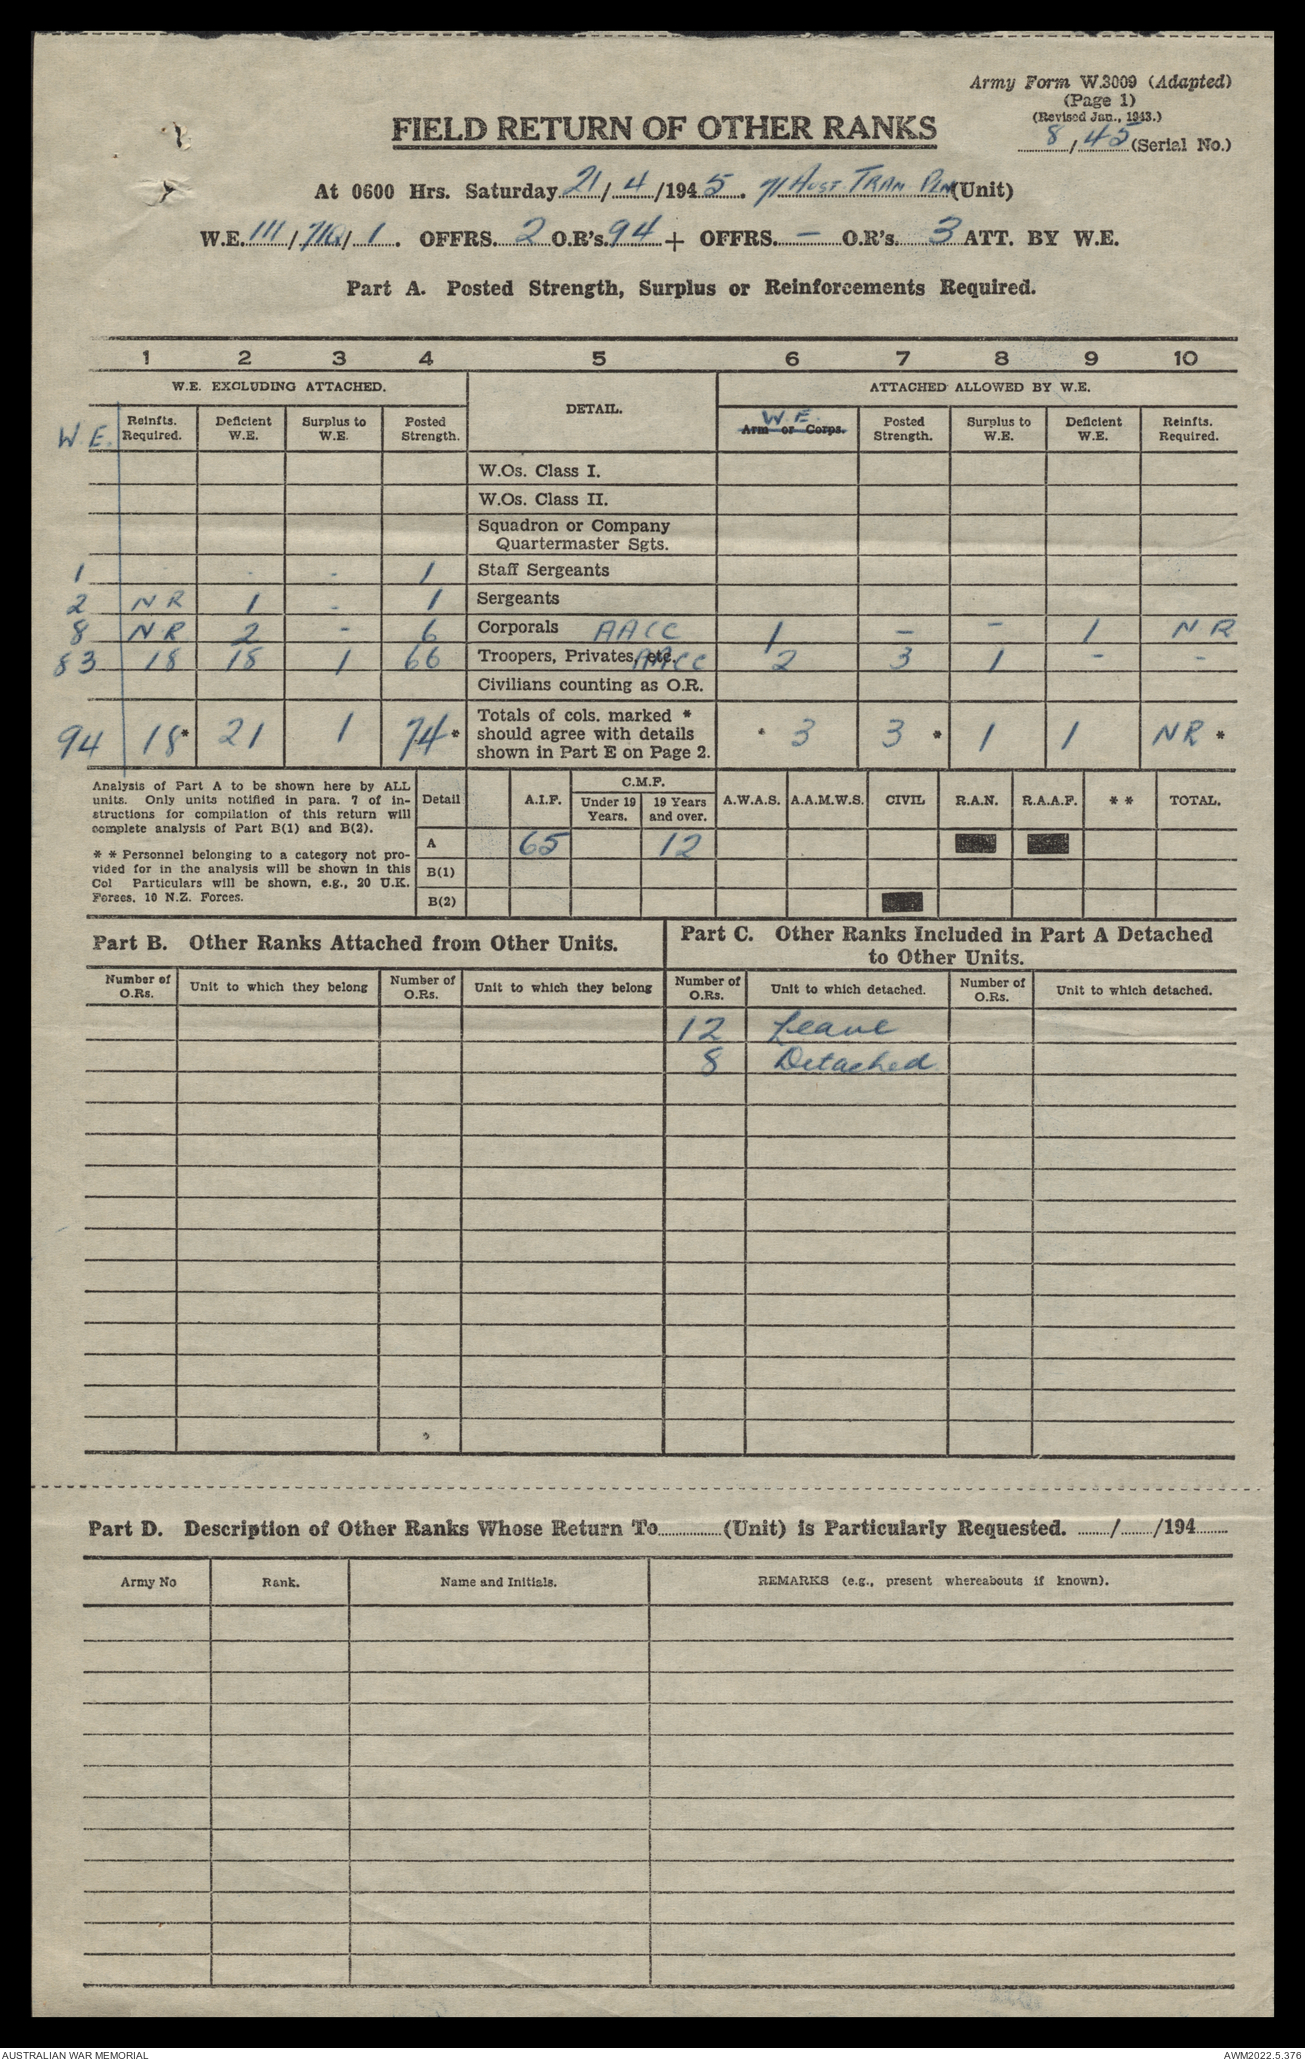 Army Form W.3009 (Adapted)
(Page 1)
(Revised Jan., 1943.)
8/45 (Serial No.)
FIELD RETURN OF OTHER RANKS
At 0600 Hrs. Saturday 21/4/1945. 71 Aust. Tran Pln (Unit)
W.E. III/71Q/1. OFFRS. 2 O.R's. 94 + OFFRS. — O.R's. 3 ATT. BY W.E.
Part A. Posted Strength, Surplus or Reinforcements Required.
1 2 3 4 5 6 7 8 9 10
W.E. EXCLUDING ATTACHED. DETAIL. ATTACHED ALLOWED BY W.E.
W.E. Reinfts. Required. Deficient W.E. Surplus to W.E. Posted Strength. W.E. Arm or Corps. Posted Strength. Surplus to W.E. Deficient W.E. Reinfts. Required.
W.Os. Class I.
W.Os. Class II.
Squadron or Company
Quartermaster Sgts.
1 - - - 1 Staff Sergeants
2 NR 1 - 1 Sergeants
8 NR 2 - 6 Corporals AACC 1 — — 1 NR
83 18 18 1 66 Troopers, Privates, etc. AACC 2 3 1 - -
Civilians counting as O.R.
94 18* 21 1 74* Totals of cols. marked * should agree with details shown in Part E on Page 2. 3 3* 1 1 NR*
Analysis of Part A to be shown here by ALL
units. Only units notified in para. 7 of in-
structions for compilation of this return will
complete analysis of Part B(1) and B(2).
* * Personnel belonging to a category not pro-
vided for in the analysis will be shown in this
Col Particulars will be shown, e.g., 20 U.K.
Forces, 10 N.Z. Forces.
Detail A.I.F. C.M.F. Under 19 Years. 19 Years and over. A.W.A.S. A.A.M.W.S. CIVIL R.A.N. R.A.A.F. * * TOTAL.
A 65 12
B(1)
B(2)
Part B. Other Ranks Attached from Other Units.
Part C. Other Ranks Included in Part A Detached
to Other Units.
Number of O.Rs. Unit to which they belong Number of O.Rs. Unit to which they belong Number of O.Rs. Unit to which detached. Number of O.Rs. Unit to which detached.
12 Leave
8 Detached
Part D. Description of Other Ranks Whose Return To............(Unit) is Particularly Requested. ....../....../194......
Army No Rank. Name and Initials. REMARKS (e.g., present whereabouts if known).
AUSTRALIAN WAR MEMORIAL AWM2022.5.376